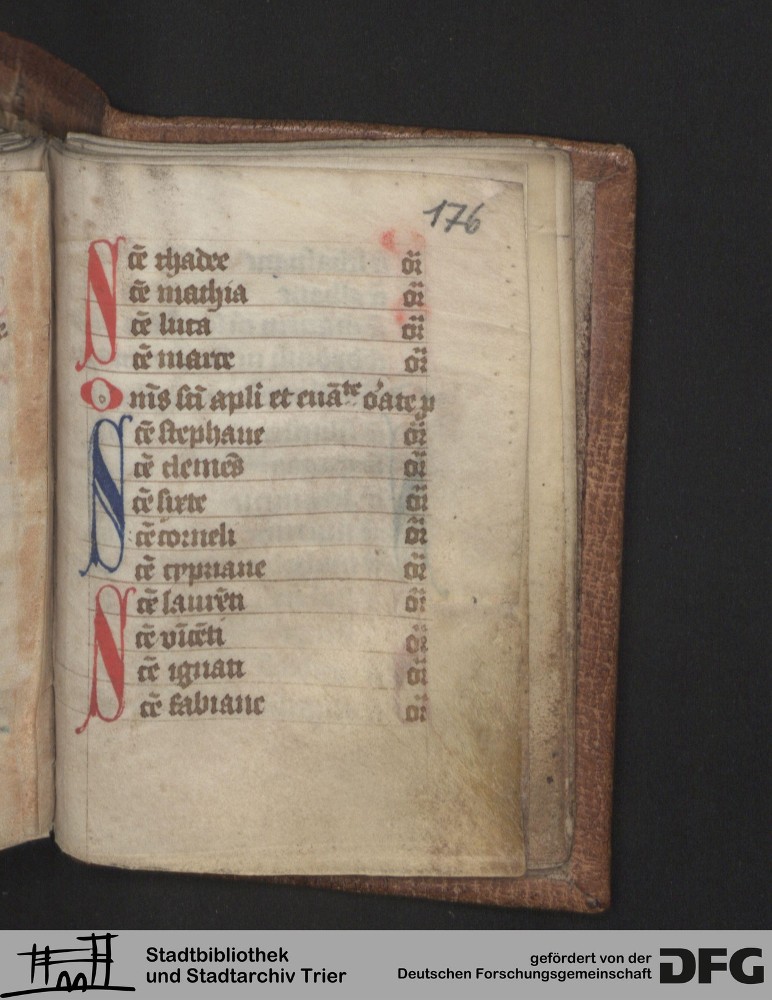 176
Sc̄e thadee or̄
sc̄e mathia or̄
sc̄e luca or̄
sc̄e marce or̄
Omīs sc̄i apli et euāte orate p
Sc̄e stephane or̄
sc̄e clemēs or̄
sc̄e sixte or̄
sc̄e corneli or̄
sc̄e cypriane or̄
Sc̄e laurēti or̄
sc̄e vīcēti or̄
sc̄e ignati or̄
sc̄e fabiane or̄
Stadtbibliothek
und Stadtarchiv Trier
gefördert von der
Deutschen Forschungsgemeinschaft
DFG